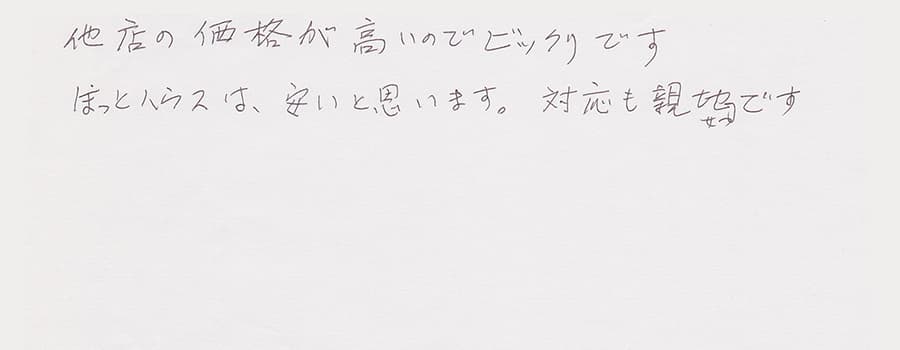 他店の価格が高いのでビックリです
ほっとハウスは、安いと思います。対応も親切です